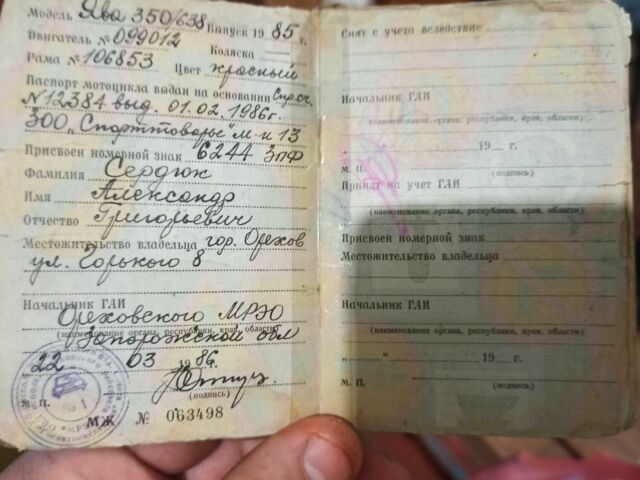 Модель Ява 350/638 Выпуск 1985 г.
Двигатель № 099012
Коляска
Рама № 106853 Цвет красный
Паспорт мотоцикла выдан на основании Спр. сч.
№12384 выд. 01.02.1986г.
300 „Спорттовары" м-н 13
Присвоен номерной знак 6244 ЗПФ
Фамилия Сердюк
Имя Александр
Отчество Григорьевич
Местожительство владельца гор. Орехов
ул. Горького 8
Начальник ГАИ
Ореховского МРЭО
(наименование органа, республики, края, области)
Запорожской обл
22 03 1986.
(подпись)
М. П.
МЖ № 063498
Снят с учета вследствие
Начальник ГАИ
(наименование органа, республики, края, области)
„ “ 19 г.
М. П. (подпись)
Принят на учет ГАИ
(наименование органа, республики, края, области)
Присвоен номерной знак
Местожительство владельца
Начальник ГАИ
(наименование органа, республики, края, области)
„ “ 19 г.
М. П. (подпись)